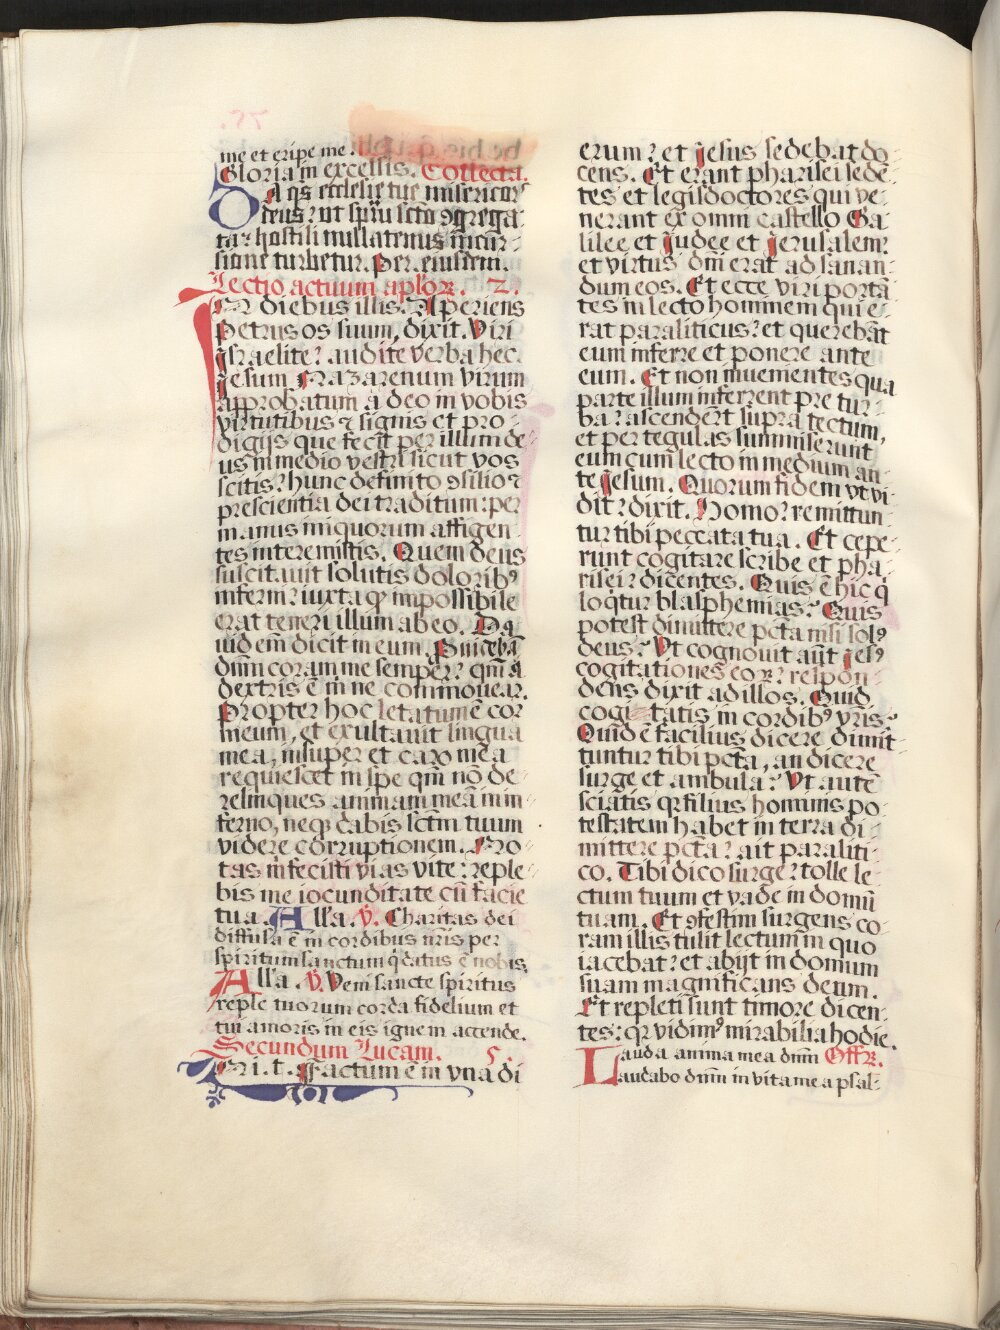 me et eripe me.
Gloria in excelsis. Collecta.
DA qs ecclesie tue misericors
deus: ut spiritu scto ꝯgrega-
ta: hostili nullatenus incur-
sione turbetur. Per. eiusdem.
Lectio actuum aploꝝ. 2.
IN diebus illis. Aperiens
Petrus os suum, dixit. Viri
Israelite: audite verba hec.
Iesum Nazarenum virum
approbatum a deo in vobis
virtutibus ⁊ signis et pro-
digijs que fecit per illum de-
us in medio vestri sicut vos
scitis: hunc definito ꝯsilio ⁊
prescientia dei traditum: per
manus iniquorum affigen-
tes interemistis. Quem deus
suscitauit solutis doloribꝰ
inferni: iuxta qꝫ impossibile
erat teneri illum ab eo. Da-
uid em̄ dicit in eum. Prouidebā
dnm̄ coram me semper: qm̄ a
dextris ē m̄ ne commouear.
Propter hoc letatum ē cor
meum, et exultauit lingua
mea, insuper et caro mea
requiescet in spe qm̄ nō de-
relinques animam meā in in-
ferno, neqꝫ dabis sctm̄ tuum
videre corruptionem. No-
tas m̄ fecisti vias vite: reple-
bis me iocunditate cū facie
tua. Alľa. ℣. Charitas dei
diffusa ē in cordibus nr̄is per
spiritum sanctum q̇ datus ē nobis.
Alľa. ℣. Veni sancte spiritus
reple tuorum corda fidelium et
tui amoris in eis ignem accende.
Secundum Lucam. 5.
IN i. t. Factum ē in vna di-
erum: et Jesus sedebat do-
cens. Et erant pharisei sede-
tes et legisdoctores qui ve-
nerant ex omni castello Ga-
lilee et Judee et Jerusalem:
et virtus dn̄i erat ad sanan-
dum eos. Et ecce viri portā-
tes in lecto hominem qui e-
rat paraliticus: et querebāt
eum inferre et ponere ante
eum. Et non inuenientes qua
parte illum inferrent pre tur-
ba: ascenderūt supra tectum,
et per tegulas summiserunt
eum cum lecto in medium an-
te Jesum. Quorum fidem vt vi-
dit: dixit. Homo: remittun-
tur tibi peccata tua. Et cepe-
runt cogitare scribe et pha-
risei: dicentes. Quis ē hic q̇
loqtur blasphemias: Quis
potest dimittere pctā nisi solꝰ
deus: Vt cognouit aūt Jesꝰ
cogitationes eoꝝ: respon-
dens dixit ad illos. Quid
cogitatis in cordibꝰ vr̄is:
Quid ē facilius dicere dimit-
tuntur tibi pctā, an dicere
surge et ambula: Vt autē
sciatis qꝛ filius hominis po-
testatem habet in terra di-
mittere pctā: ait paraliti-
co. Tibi dico surge: tolle le-
ctum tuum et vade in domū
tuam. Et ꝯfestim surgens co-
ram illis tulit lectum in quo
iacebat: et abijt in domum
suam magnificans deum.
Et repleti sunt timore dicen-
tes: qꝛ vidimꝰ mirabilia hodie.
Lauda anima mea dnm̄ Offꝝ.
Laudabo dnm̄ in vita mea psal-